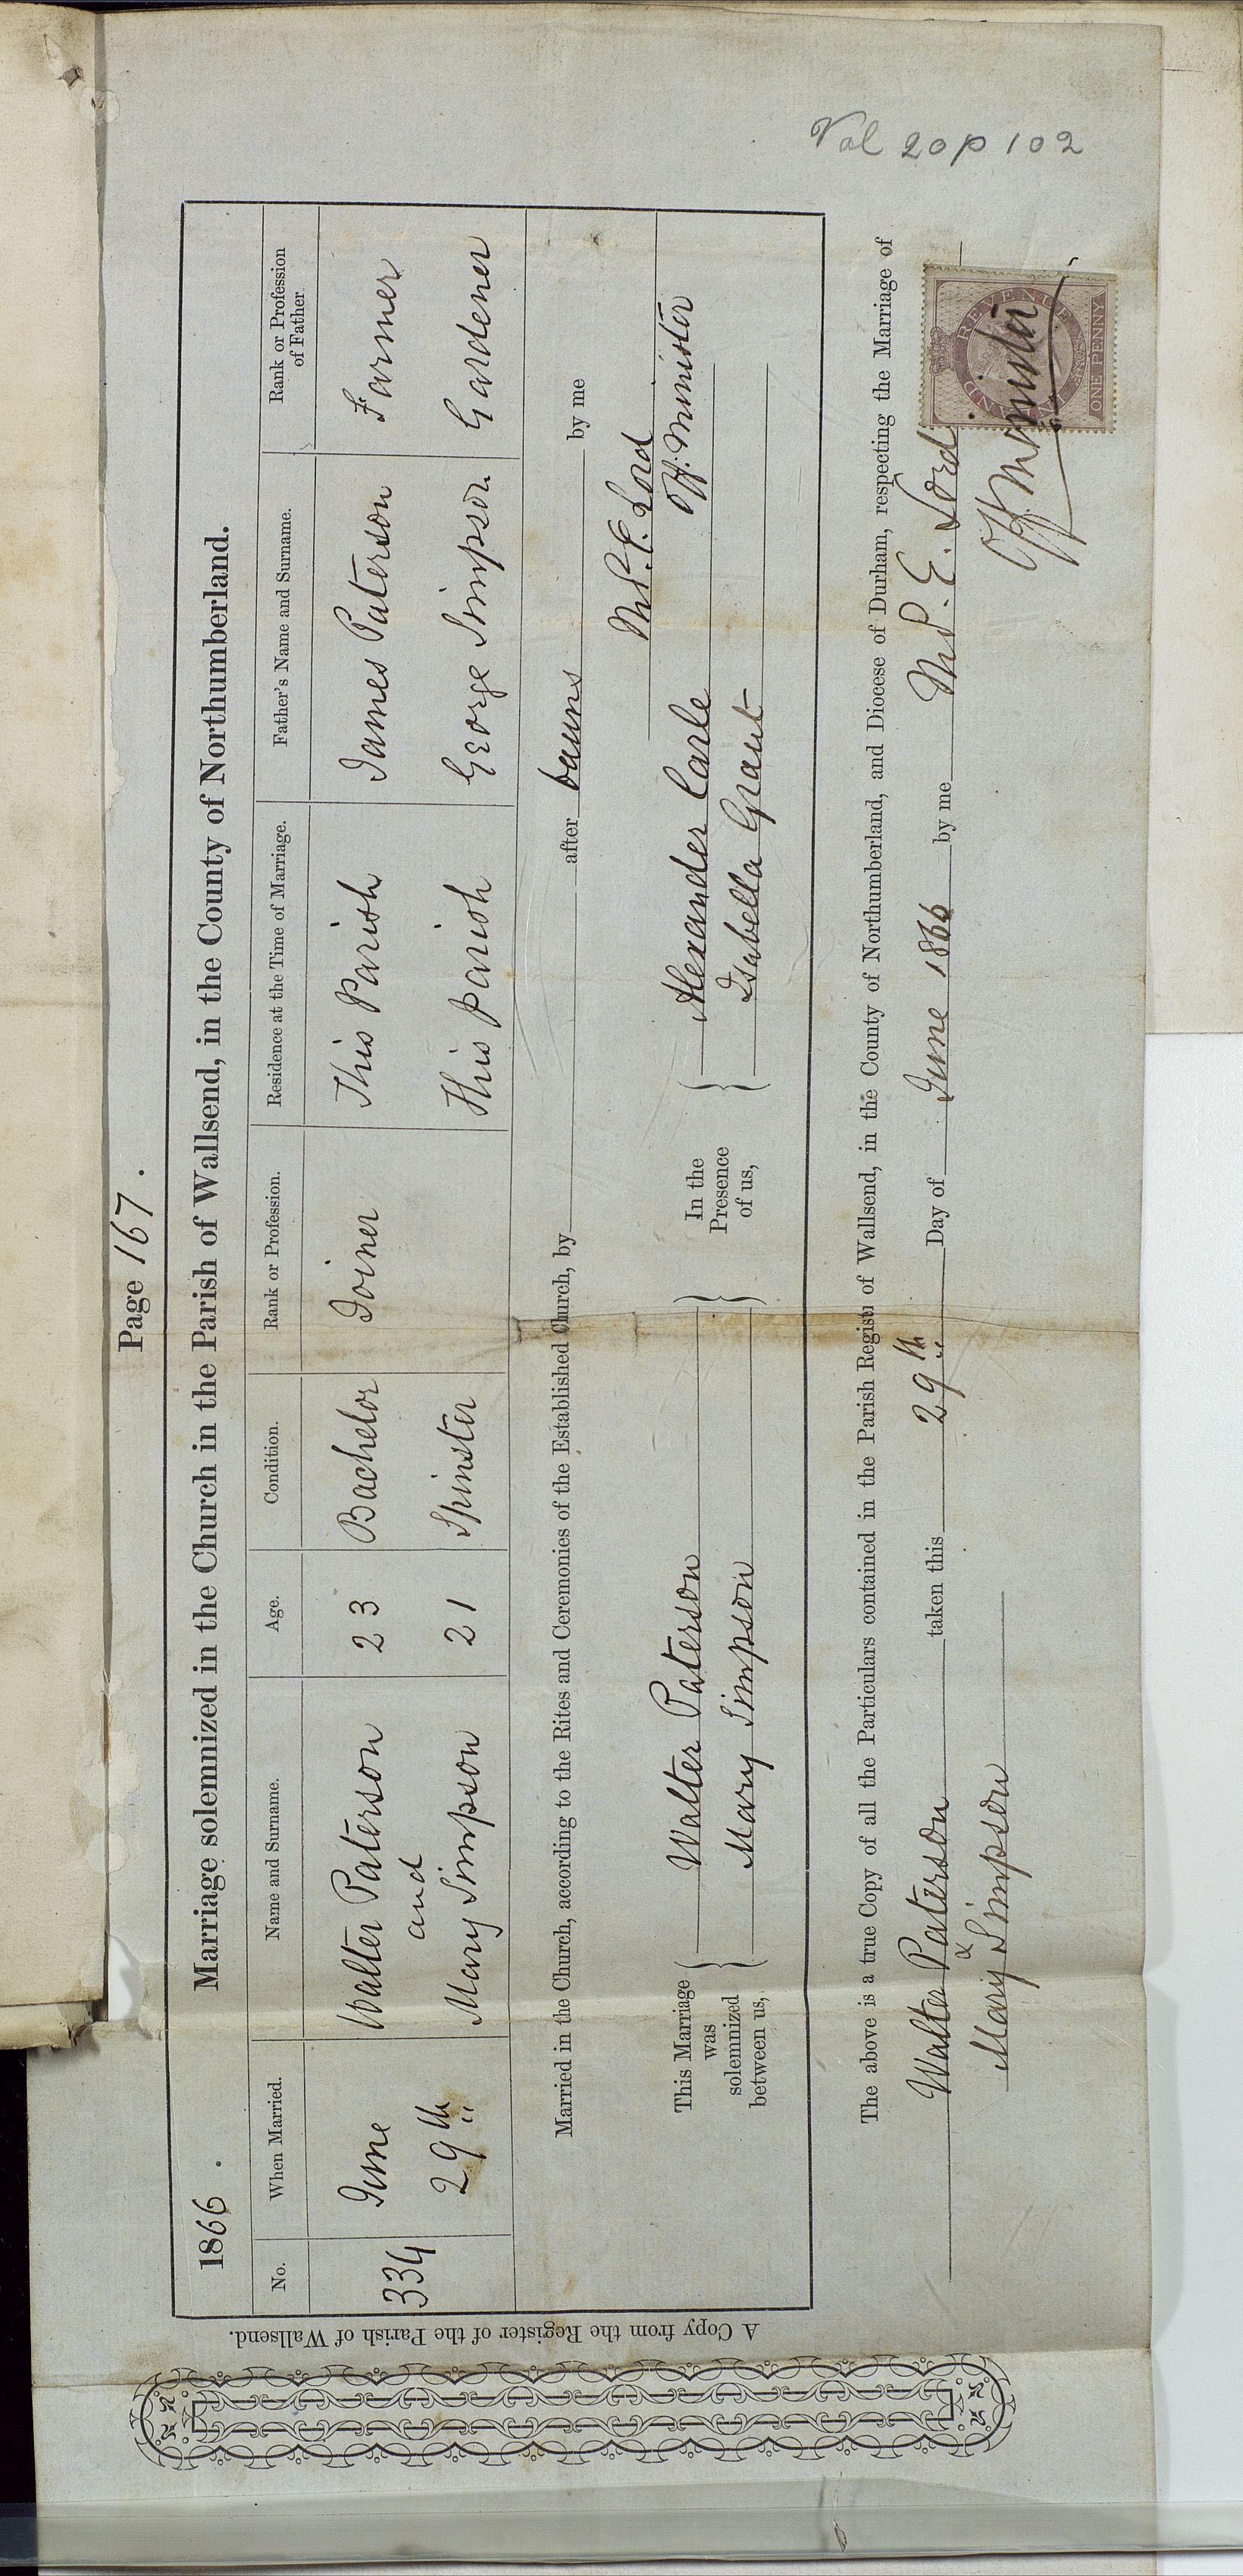 Page 167.
1866. Marriage solemnized in the Church in the Parish of Wallsend, in the County of Northumberland.
No. When Married. Name and Surname. Age. Condition. Rank or Profession. Residence at the Time of Marriage. Father's Name and Surname. Rank or Profession of Father
334 June 29th Walter Paterson 23 Bachelor Joiner This Parish James Paterson Farmer
and
Mary Simpson 21 Spinster This parish George Simpson Gardener
Married in the Church, according to the Rites and Ceremonies of the Established Church, by after banns by me
E. Lord
Off. Minister
This Marriage was solemnized between us, Walter Paterson In the Presence of us, Alexander Carle
Mary Simpson Isabella Grant
The above is a true Copy of all the Particulars contained in the Parish Register of Wallsend, in the County of Northumberland, and Diocese of Durham, respecting the Marriage of
Walter Paterson taken this 29th Day of June 1866 by me E. Lord
&
Mary Simpson Off. Minister
INLAND REVENUE
ONE PENNY
A Copy from the Register of the Parish of Wallsend.
Vol 20 p 102